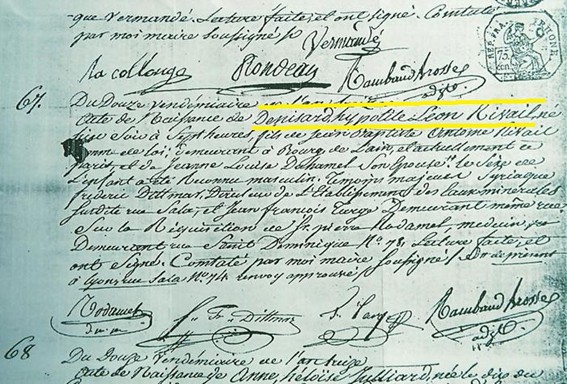 que Vermandé. Lecture faite, et ont signé. Constaté
par moi maire soussigné
Vermandé
la collonge Rondeau Rambaud Brosse
adjt
67. Du Douze vendémiaire
acte de Naissance de Denisard hypolite Léon Rivail, né
hier Soir à Sept heures, fils de Jean Baptiste Antoine Rivail
homme de loi, demeurant à Bourg de l'ain, et actuellement à
Paris, et de Jeanne Louise Duhamel Son Epouse. le Sexe de
L'enfant a été Reconnu masculin. Témoins majeurs Syriaque
fréderic Dittmar, Directeur de l'Etablissement des Eaux minérales
Susdite rue Sala, et Jean françois Targe Demeurant même rue
Sur la Réquisition de pierre Rodamel, médecin
Demeurant rue Saint Dominique N.° 78. Lecture faite, et
ont Signé. Constaté par moi maire Soussigné.
à Lyon, rue Sala N.° 74 renvoy approuvé
Rodamel
d.m.m
Dittmar
Rambaud Brosse
adjt
68 Du Douze Vendémiaire de l'an treize
acte de Naissance de Anne, héloïse, née le dix du